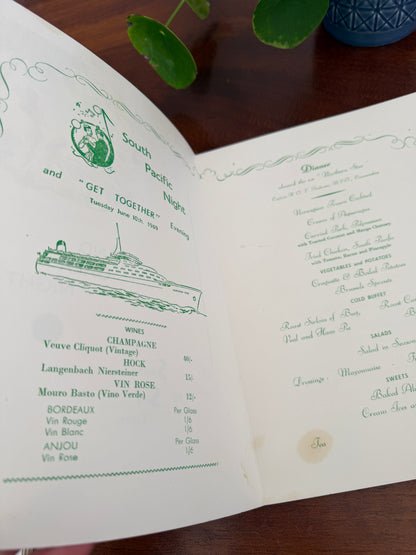 South
Pacific
Night
and "GET TOGETHER" Evening
Tuesday June 10th. 1969
WINES
CHAMPAGNE
Veuve Cliquot (Vintage)
HOCK
Langenbach Niersteiner 15/-
VIN ROSE
Mouro Basto (Vino Verde) 12/-
BORDEAUX Per Glass
Vin Rouge 1/6
Vin Blanc 1/6
ANJOU Per Glass
Vin Rose 1/6
Dinner
aboard the "Northern Star"
Commander
Norwegian Prawn Cocktail
Cream of Asparagus
Curried Pork, Polynesienne
with Toasted Coconut and Mango Chutney
Fried Chicken, South Pacific
with Tomato, Bacon and Pineapple
VEGETABLES and POTATOES
Croquette & Baked Potatoes
Brussels Sprouts
COLD BUFFET
Roast Sirloin of Beef,
Veal and Ham Pie
SALADS
Salad in Season
Dressings - Mayonnaise
SWEETS
Baked
Cream Ices
Tea